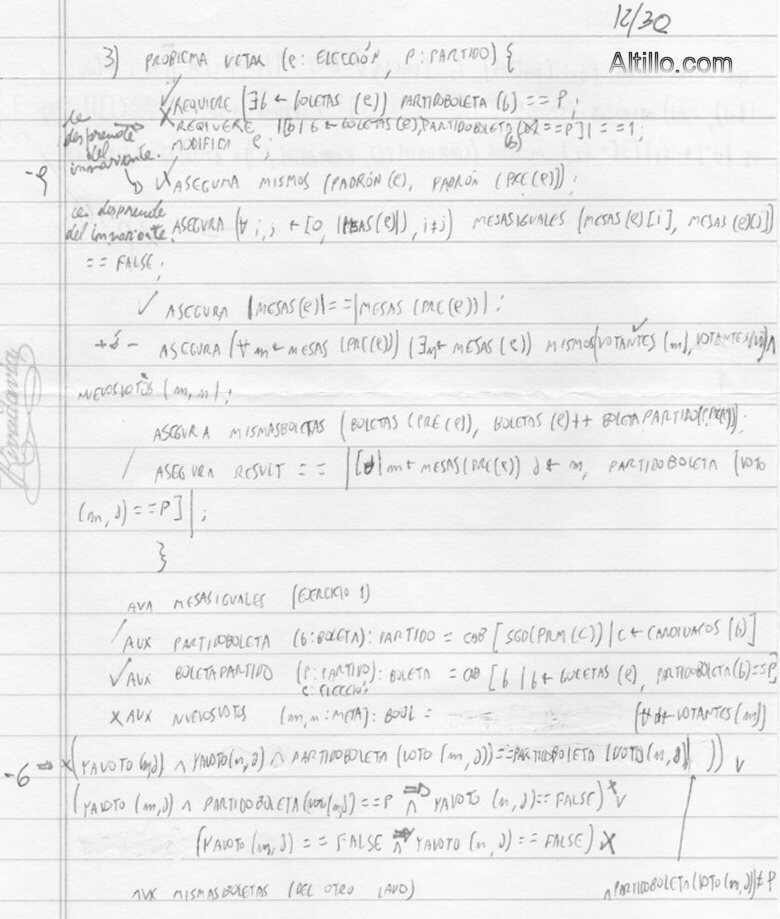 12/30
Altillo.com
3) PROBLEMA VETAR (e: ELECCIÓN, P: PARTIDO) {
✓ REQUIERE (∃ b ← BOLETAS (e)) PARTIDOBOLETA (b) == P;
se desprende del invariante. → x REQUIERE |[b | b ← BOLETAS(e), PARTIDOBOLETA (b) == P]| == 1;
MODIFICA e;
-9 x ASEGURA MISMOS (PADRÓN(e), PADRÓN (PRE(e)));
se desprende del invariante. ASEGURA (∀ i, j ← [0, |MESAS(e)|), i≠j) MESASIGUALES (MESAS(e)[i], MESAS(e)[j])
== FALSE;
✓ ASEGURA |MESAS(e)| == |MESAS (PRE(e))|;
ASEGURA (∀ m ← MESAS (PRE(e))) (∃ n ← MESAS (e)) MISMOS (VOTANTES (m), VOTANTES (n)) ∧
NUEVOSVOTOS (m, n);
ASEGURA MISMASBOLETAS (BOLETAS (PRE(e)), BOLETAS (e) ++ BOLETAPARTIDO
/ ASEGURA RESULT == |[ | m ← MESAS (PRE(e)) d ← m, PARTIDOBOLETA (VOTO
(m, d) == P]|;
}
Rivadavia
AUX MESASIGUALES (EJERCICIO 1)
/ AUX PARTIDOBOLETA (b: BOLETA): PARTIDO = CAB [SGD(PRM(C)) | C ← CANDIDATOS (b)]
✓ AUX BOLETAPARTIDO (P: PARTIDO): BOLETA = CAB [b | b ← BOLETAS (e), PARTIDOBOLETA(b) == P]
e: ELECCIÓN
x AUX NUEVOSVOTOS (m, n: MESA): BOOL = (∀ d ← VOTANTES (m))
-6 ⇒ x (YAVOTO (m, d) ∧ YAVOTO (n, d) ∧ PARTIDOBOLETA (VOTO (m, d)) == PARTIDOBOLETA (VOTO (n, d) )) ∨
(YAVOTO (m, d) ∧ PARTIDOBOLETA (VOTO (m, d) == P ∧ YAVOTO (n, d) == FALSE) ∨
(YAVOTO (m, d) == FALSE ∧ YAVOTO (n, d) == FALSE) x
AUX MISMASBOLETAS (DEL OTRO LADO)
∧ PARTIDOBOLETA (VOTO (m, d)) ≠ P